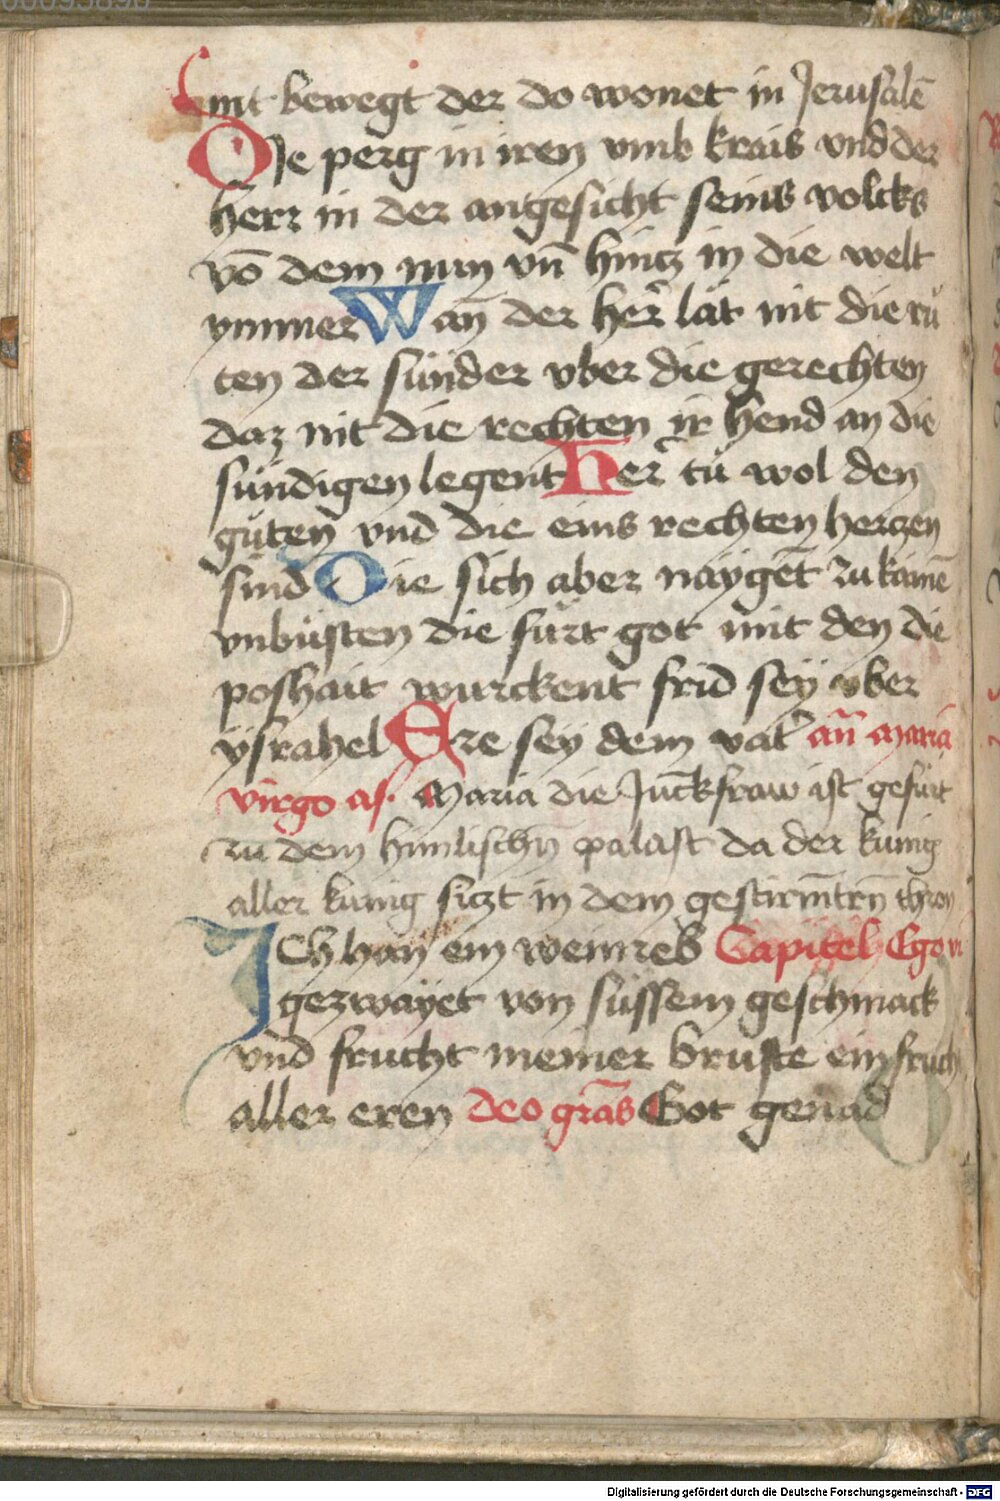 00095896
nit bewegt der do wonet in Jerusalē
Die perg in iren vmb krais vnd der
herr in der angesicht seins volcks
vō dem nun vn̄ hincz in die welt
ymmer Wan̄ der her lät nit die rů
ten der sünder vber die gerechten
daz nit die rechten ir hend an die
sündigen legent Her tů wol den
gůten vnd die eins rechten herczen
sind Die sich aber naygēt zu kainē
vnbüsten die fürt got mit den die
poshait wurckent frid seÿ vber
ÿsrahel Ere sey dem vat̄ an̄ maria
virgo as. Maria die Junckfraw ist gefürt
zu dem himlischn̄ palast da der kunig
aller kunig siczt in dem gestirm̄tn̄ thron
ICh han ein weinreb Capitel Ego vi
gezwayet von süssem geschmack
vnd frucht meiner bruste ein frucht
aller eren deo grās Got genad
Digitalisierung gefördert durch die Deutsche Forschungsgemeinschaft - DFG